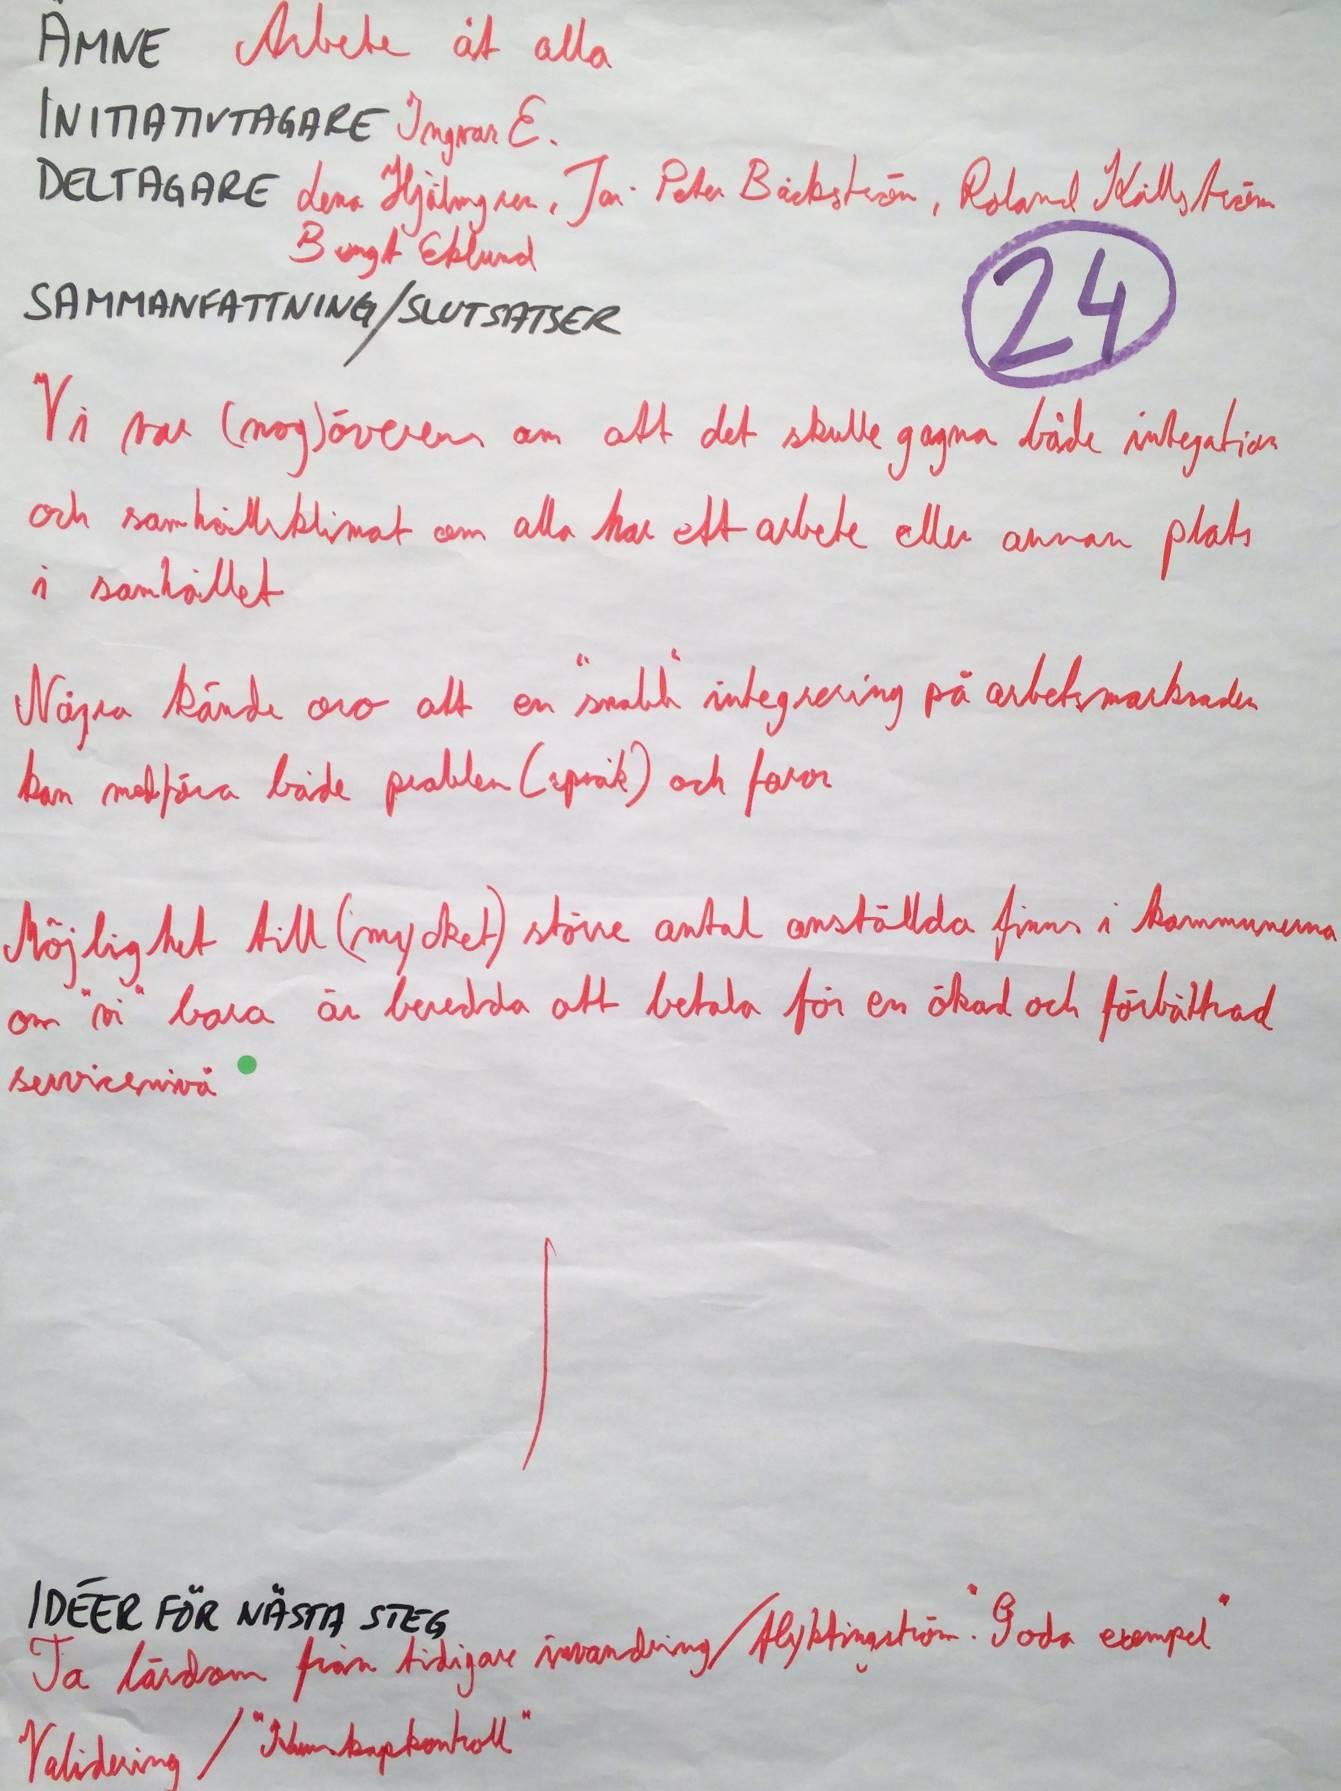 ÄMNE Arbete åt alla
INITIATIVTAGARE Ingvar E.
DELTAGARE Lena Hjälmgren, Jan-Peter Bäckström, Roland Källström
Bengt Eklund
24
SAMMANFATTNING/SLUTSATSER
Vi var (nog) överens om att det skulle gagna både integration
och samhällsklimat om alla har ett arbete eller annan plats
i samhället
Några kände oro att en "snabb" integrering på arbetsmarknaden
kan medföra både problem (språk) och faror
Möjlighet till (mycket) större antal anställda finns i kommunerna
om "vi" bara är beredda att betala för en ökad och förbättrad
servicenivå
IDÉER FÖR NÄSTA STEG
Ta lärdom från tidigare invandring/flyktingström. "Goda exempel"
Validering / "Kunskapkontroll"